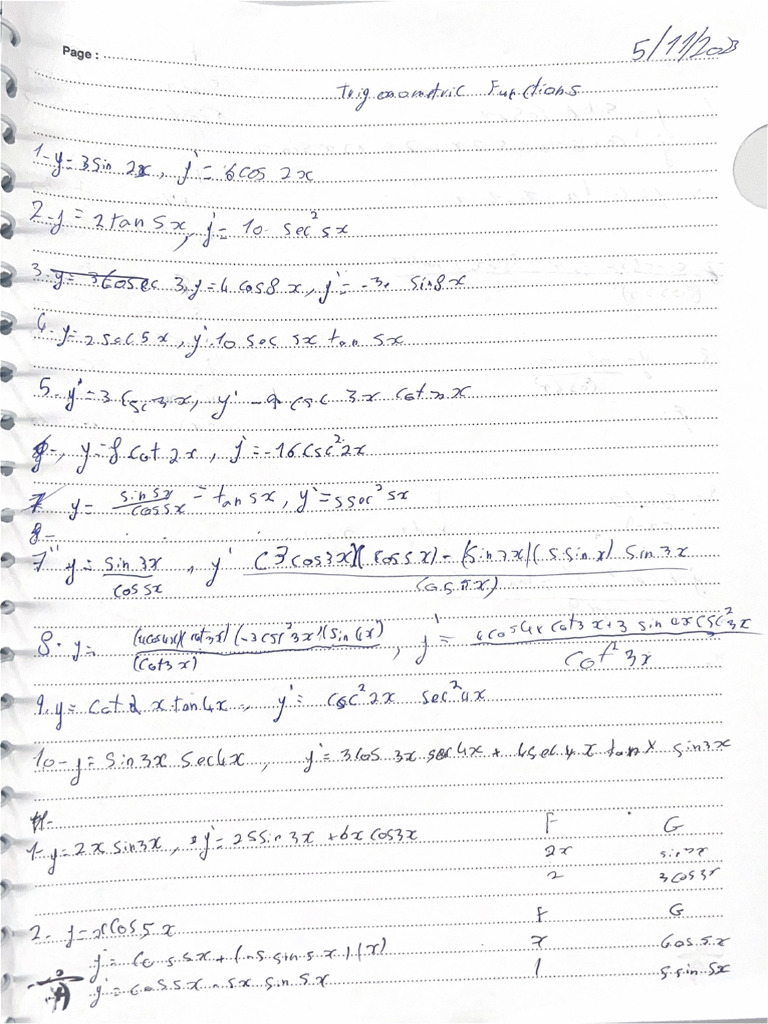 Page :
5/11/2023
Trigonometric Functions
1- y = 3 sin 2x, y' = 6 cos 2x
2- y = 2 tan 5x, y' = 10 sec² 5x
3. y = 3 Cosec 3, y = 4 cos 8x, y' = -3 sin 8x
4. y = 2 sec 5x, y' 10 sec 5x tan 5x
5. y' = 3 Csc 3x, y' -9 csc 3x cot 3x
y = 8 cot 2x, y' = -16 csc² 2x
7 y = sin 5x / cos 5x = tan 5x, y' = 5 sec² 5x
8-
7" y = sin 3x / cos 5x, y' (3 cos 3x)(cos 5x) - (sin 3x)(5 sin x) sin 3x / cos 5x)
8. y = (4cos4x)(cot3x)(-3csc²3x)(sin 4x) / (cot3x), y' = 4cos4x cot3x+3 sin 4x csc² 3x / cot² 3x
9. y = cot 2x tan 4x, y' = csc² 2x sec² 4x
10- y = sin 3x sec 4x, y' = 3 cos 3x sec 4x + 4 sec 4x tan x sin 3x
11-
1- y = 2x sin 3x, y' = 2 sin 3x + 6x cos 3x
F G
2x sin 3x
2 3 cos 3x
2- y = x cos 5x
F G
y' = co s 5x + (-5 sin 5x)(x)
x cos 5x
y' = cos 5x - 5x sin 5x
1 5 sin 5x